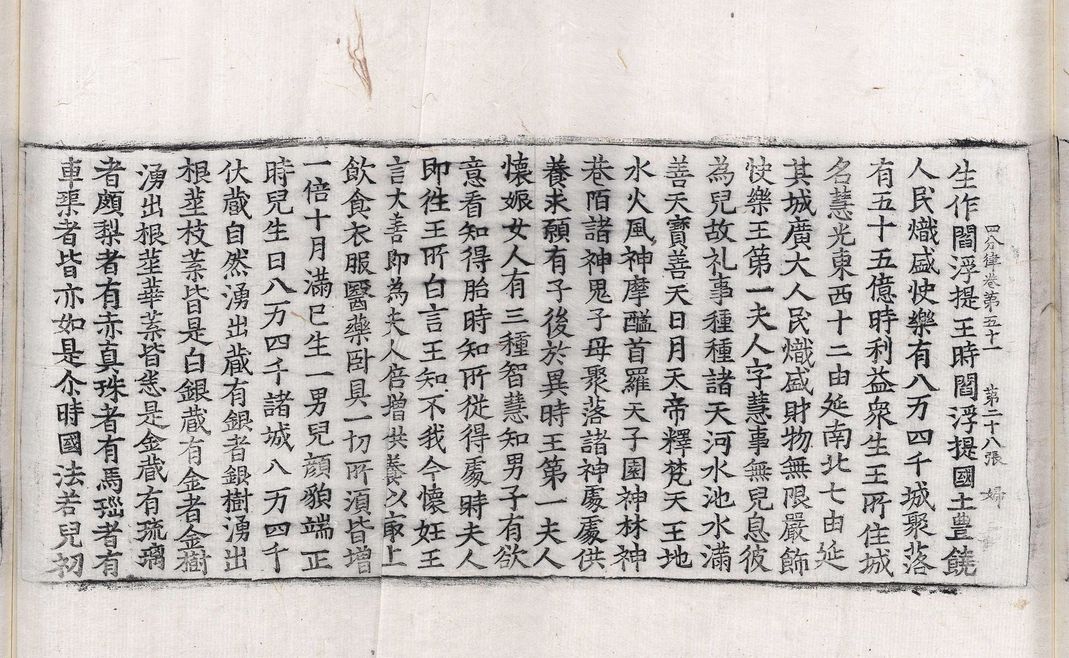 四分律卷第五十一　第二十八張　婦
生作閻浮提王時閻浮提國土豊饒
人民熾盛快樂有八万四千城聚落
有五十五億時利益衆生王所住城
名慧光東西十二由延南北七由延
其城廣大人民熾盛財物無限嚴飾
快樂王第一夫人字慧事無兒息彼
為兒故礼事種種諸天河水池水滿
善天寶善天日月天帝釋梵天王地
水火風神摩醯首羅天子園神林神
巷陌諸神鬼子母聚落諸神處處供
養求願有子後於異時王第一夫人
懷娠女人有三種智慧知男子有欲
意看知得胎時知所從得處時夫人
即往王所白言王知不我今懷妊王
言大善即為夫人倍增供養以冣上
飲食衣服醫藥卧具一切所湏皆增
一倍十月滿已生一男兒顔貌端正
時兒生日八万四千諸城八万四千
伏蔵自然湧出蔵有銀者銀樹湧出
根莖枝葉皆是白銀蔵有金者金樹
湧出根莖華葉皆悉是金蔵有琉璃
者頗梨者有赤真珠者有馬瑙者有
車璩者皆亦如是尒時國法若兒初